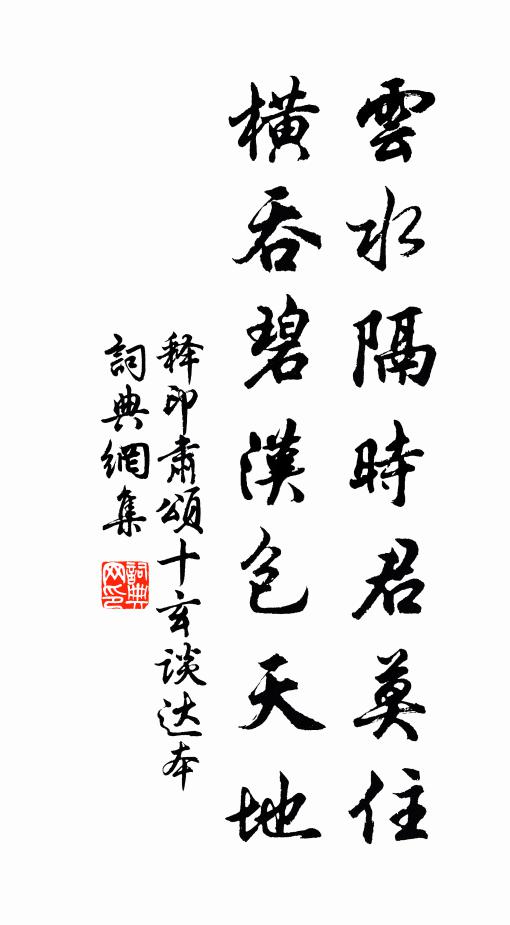 雲水隔時君莫住
橫吞碧漢包天地
释印肅頌十玄談达本
詞典網集
詞典网印